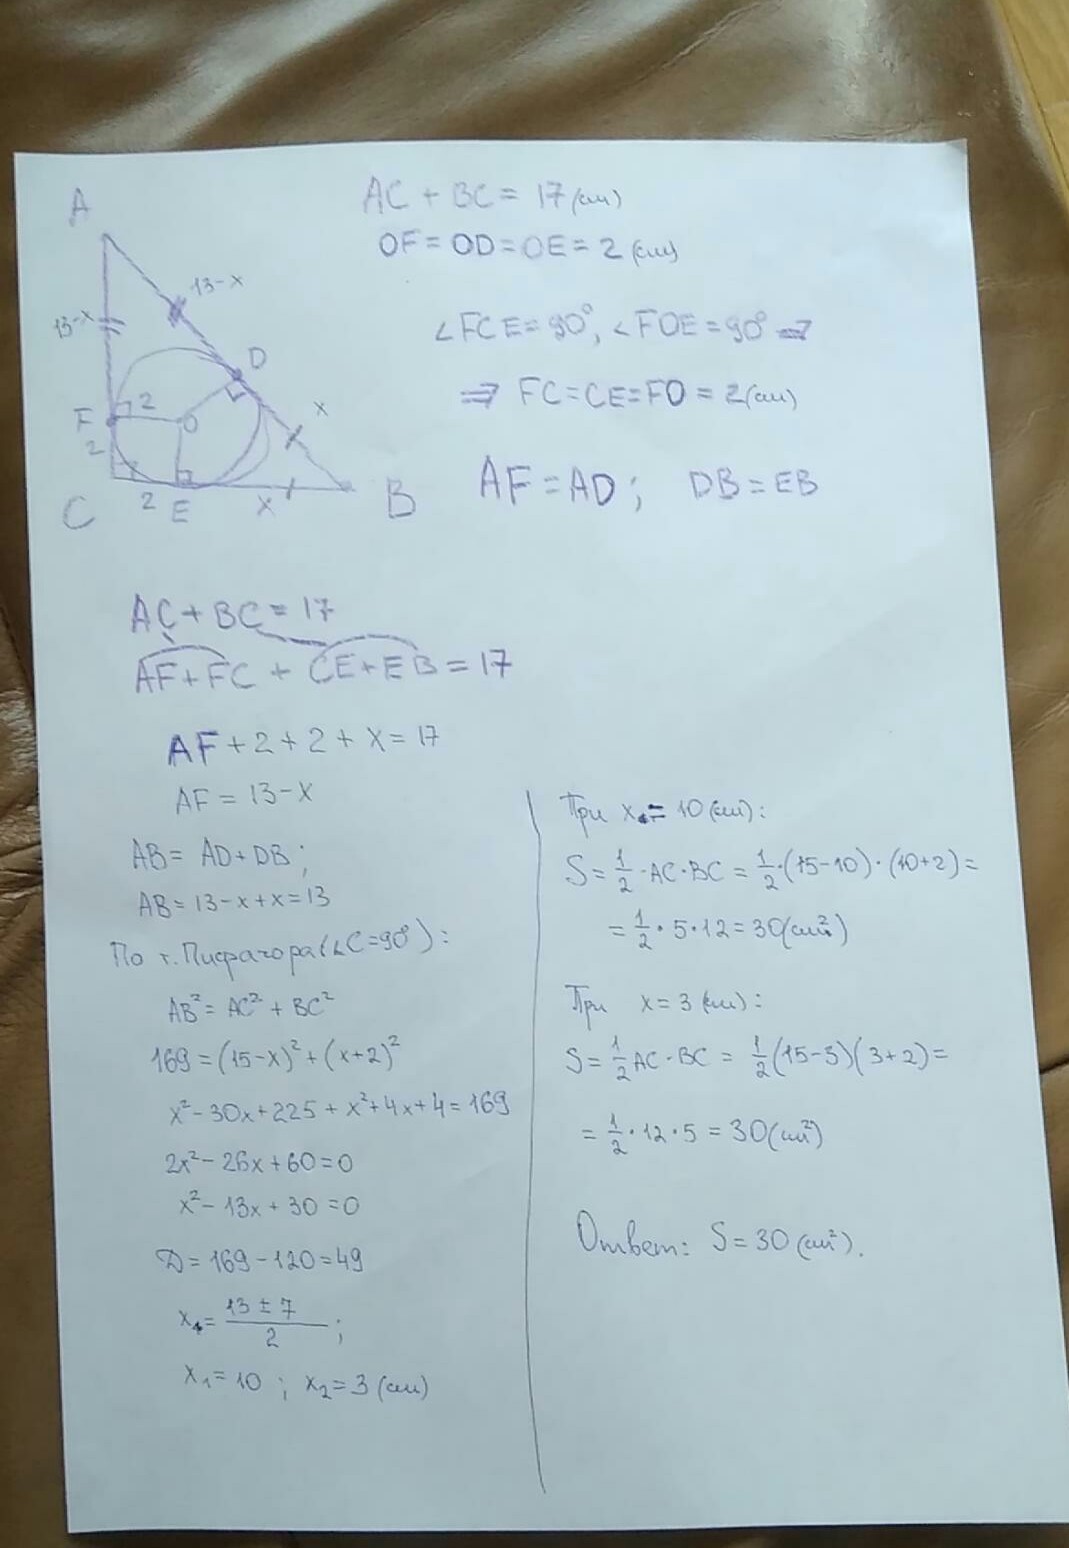 A
AC + BC = 17 (см)
OF = OD = OE = 2 (см)
13-x
13-x
∠FCE = 90°, ∠FOE = 90° ⇒
D
⇒ FC = CE = FO = 2 (см)
x
2
F
O
2
AF = AD ; DB = EB
C 2 E x B
AC + BC = 17
AF + FC + CE + EB = 17
AF + 2 + 2 + x = 17
AF = 13 - x
AB = AD + DB ;
AB = 13 - x + x = 13
По т. Пифагора (∠C = 90°) :
AB² = AC² + BC²
169 = (15-x)² + (x+2)²
x² - 30x + 225 + x² + 4x + 4 = 169
2x² - 26x + 60 = 0
x² - 13x + 30 = 0
D = 169 - 120 = 49
x₁ = (13 ± 7)/2 ;
x₁ = 10 ; x₂ = 3 (см)
При x = 10 (см) :
S = 1/2 · AC · BC = 1/2 · (15-10) · (10+2) =
= 1/2 · 5 · 12 = 30 (см²)
При x = 3 (см) :
S = 1/2 AC · BC = 1/2 (15-3)(3+2) =
= 1/2 · 12 · 5 = 30 (см²)
Ответ: S = 30 (см²).